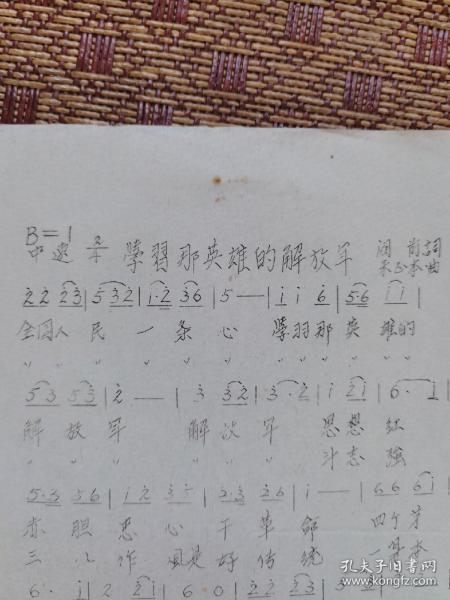 B=1
中速 2/4 學習那英雄的解放军 阎肃詞
曲
2̇ 2̇ 2̇3̇ | 5̇ 3̇2̇ | i·2̇ 3̇6 | 5 — | i i 6 | 5·6 i i |
全国人 民 一 条 心 學习那 英 雄的
〃 〃 〃 〃 〃 〃 〃 〃 〃 〃 〃
5̇3̇ 5̇3̇ | 2̇ — | 3̇ 3̇2̇ | 3̇·2̇ | i 2̇i | 6·i |
解 放 军 解 放 军 思想 红
〃 〃 〃 〃 〃 斗志 強
5·3 56 | i 2̇ 3̇5̇ | 2̇·3̇ 2̇6 | i — | 66 6i |
赤 胆 忠 心 干 革 命 四个第
三八作 風是 好 传 统 一
6· i | 2̇ 2̇i | 6 0 | 2̇2̇ 2̇3̇ | 3̇·
孔夫子旧书网